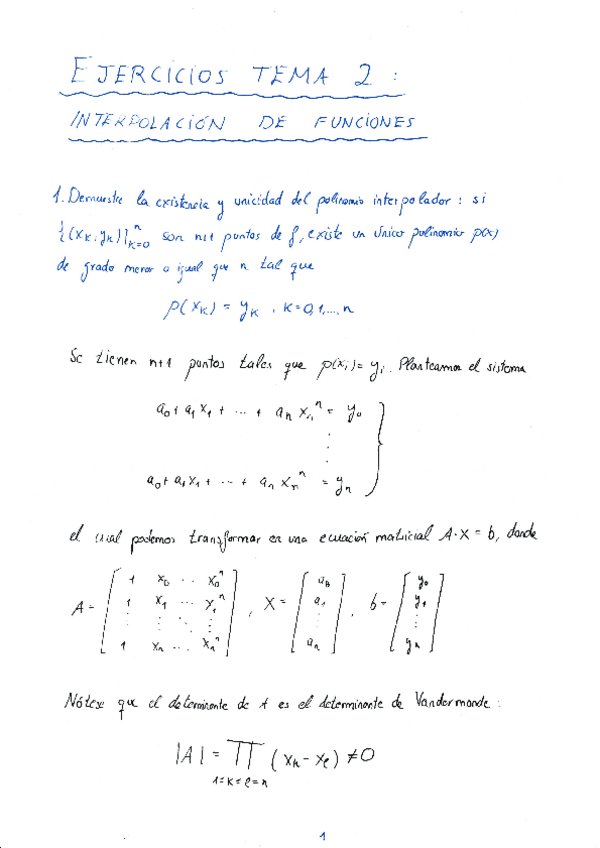 EJERCICIOS TEMA 2 :
INTERPOLACIÓN DE FUNCIONES
1. Demuestre la existencia y unicidad del polinomio interpolador : si
{(xₖ, yₖ)}ⁿₖ₌₀ son n+1 puntos de f, existe un único polinomio p(x)
de grado menor o igual que n tal que
p(xₖ) = yₖ , k=0,1,...,n
Se tienen n+1 puntos tales que p(xᵢ) = yᵢ. Planteamos el sistema
a₀ + a₁ x₁ + ... + aₙ x₁ⁿ = y₀
⋮
a₀ + a₁ x₁ + ... + aₙ xₙⁿ = yₙ
el cual podemos transformar en una ecuación matricial A·X = b, donde
A = [ 1 x₀ ... x₀ⁿ ; 1 x₁ ... x₁ⁿ ; ⋮ ⋮ ⋱ ⋮ ; 1 xₙ ... xₙⁿ ] , X = [ a₀ ; a₁ ; ⋮ ; aₙ ] , b = [ y₀ ; y₁ ; ⋮ ; yₙ ]
Nótese que el determinante de A es el determinante de Vandermonde :
|A| = ∏ (xₖ - xₗ) ≠ 0
1=k=l=n
1